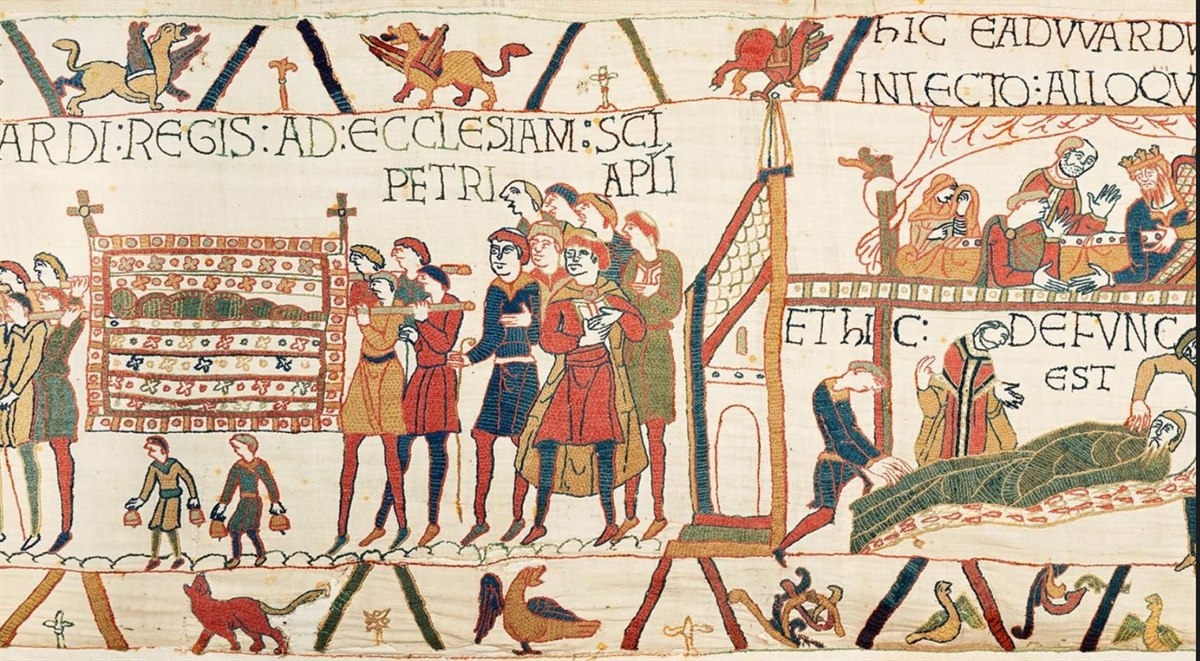 ARDI:REGIS:AD:ECCLESIAM:SCI
PETRI APLI
hIC EADVVARDV
INLECTO:ALLOQV
EThIC: DEFVNC
EST